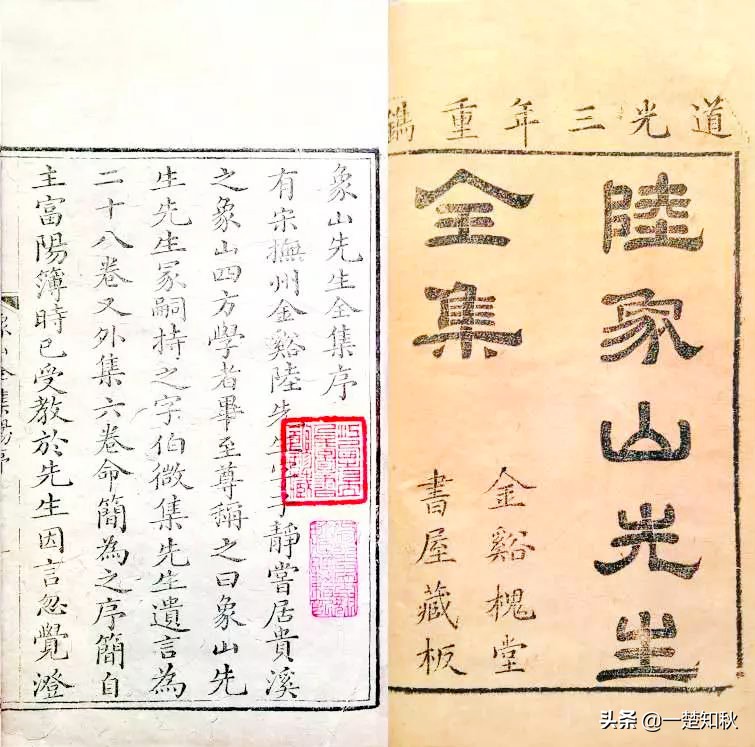 道光三年重鐫
陸象山先生
全集
金谿槐堂
書屋藏板
象山先生全集序
有宋撫州金谿陸先生字子靜嘗居貴溪
之象山四方學者畢至尊稱之曰象山先
生先生冢嗣持之字伯微集先生遺言為
二十八卷又外集六卷命簡為之序簡自
主富陽簿時已受教於先生因言忽覺澄
象山全集楊序
头条 @一楚知秋